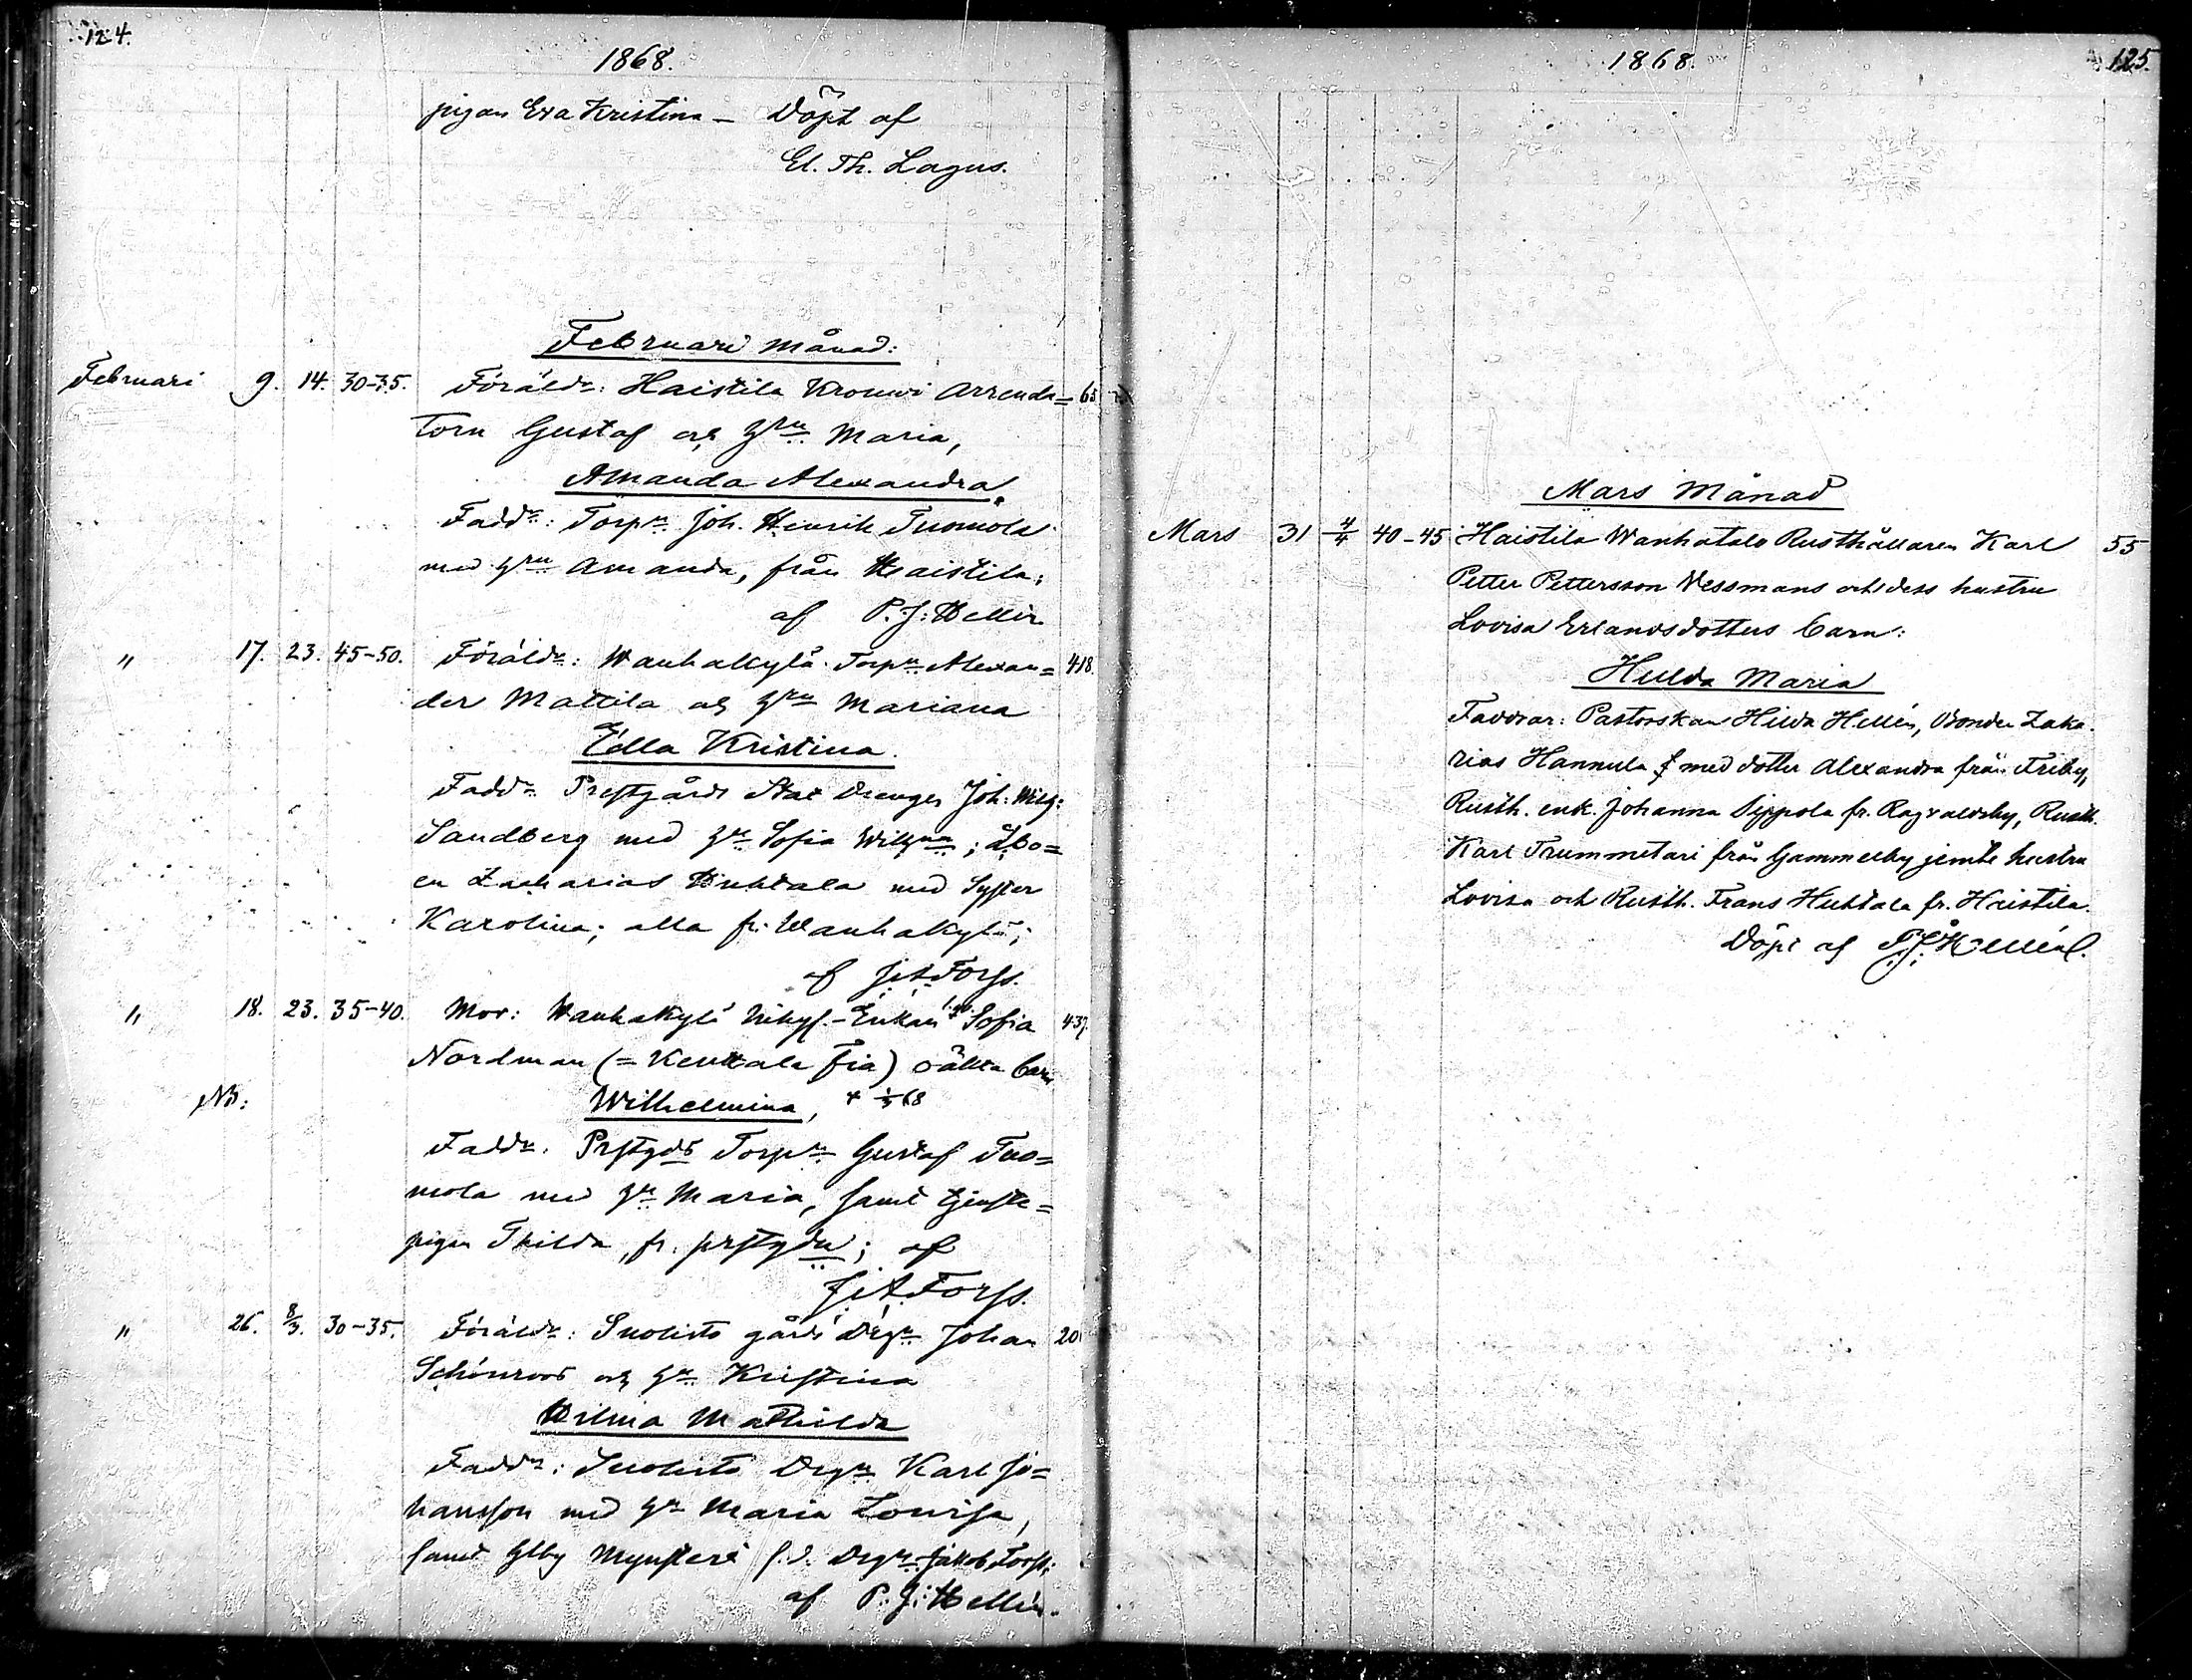 124.
1868.
pigan Eva Kristina - Döpt af
El. Th. Lagus.
Februari månad:
Februari 9. 14. 30-35. Föräldr: Haistila Krouvi Arrenda= 65
torn Gustaf och hru Maria,
Amanda Alexandra.
Faddr: Torpn Joh. Henrik Tuomola
med hru Amanda, från Haistila;
af P. J. Hellén
" 17. 23. 45-50. Föräldr: Wanhakylä Torpn Alexan= 418.
der Mattila och hru Mariana
Edla Kristina.
Faddr Prestgårds Stat Drengen Joh: Wilh:
Sandberg med hru Sofia Wilhna; Åbo=
en Zacharias Huhtala med Syster
Karolina; alla fr. Wanhakylä;
af J. A. Forss.
" 18. 23. 35-40. Mor: Wanhakylä Enkan Sofia 437.
Nordman (= Kenttala Fia) oäkta barn
NB: Wilhelmina, + 68
Faddr. Prstgds Torpn Gustaf Tuo=
mola med hr Maria, samt tjenste=
pigan Thilda, fr. prstgdn; af
J. A. Forss.
" 26. 8/3. 30-35. Föräldr: Suolisto gårds Drgn Johan 20
Schönroos och hr Kristina
Hilma Mathilda
Faddr: Suolisto Drgn Karl Jo=
hansson med hr Maria Lovisa,
samt Glby Mynsteri f.d. Drgn Jakob Forss;
af P. J. Hellén.
1868.
125.
Mars Månad
Mars 31 4/4 40-45 Haistila Wanhatalo Rusthållaren Karl 55
Petter Pettersson Wessmans och dess hustru
Lovisa Erlandsdotters barn:
Hulda Maria
Faddrar: Pastorskan Hilda Hellén, Bonden Zaka-
rias Hannula med dotter Alexandra från Friby,
Rusth. enk. Johanna Sippola fr. Ragvaldsby, Rusth.
Karl Trummetari från Gammelby jemte hustru
Lovisa och Rusth. Frans Huhtala fr. Haistila.
Döpt af P. J. Hellén.